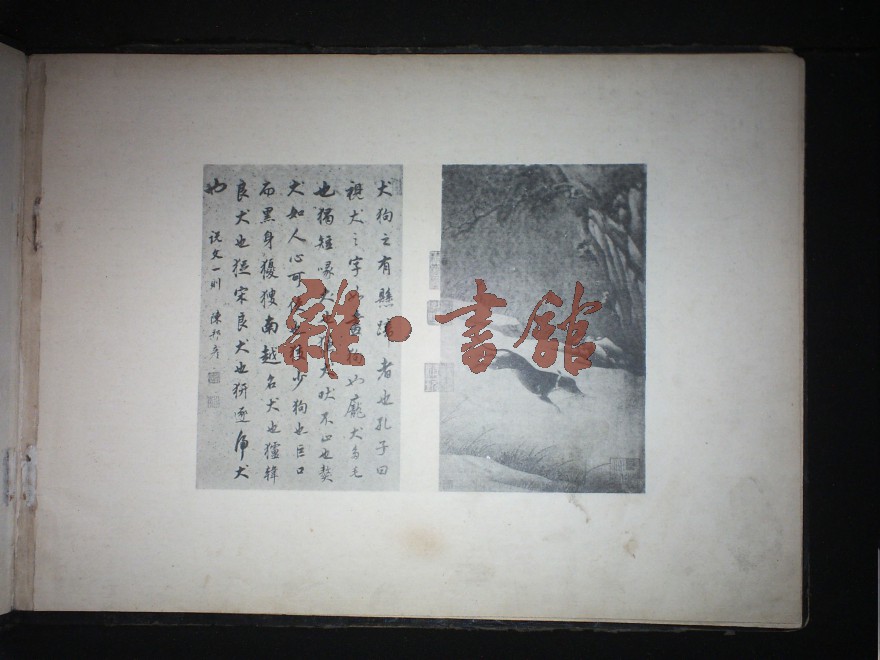 犬狗之有懸蹏者也孔子曰
視犬之字如畫狗也尨犬多毛
也獨短喙犬也 犬吠不止也獒
犬如人心可使 少狗也巨口
而黑身獿獀南越名犬也獹韓
良犬也㹱宋良犬也 逐 犬
也
说文一則
陳邦彦
雜·書館